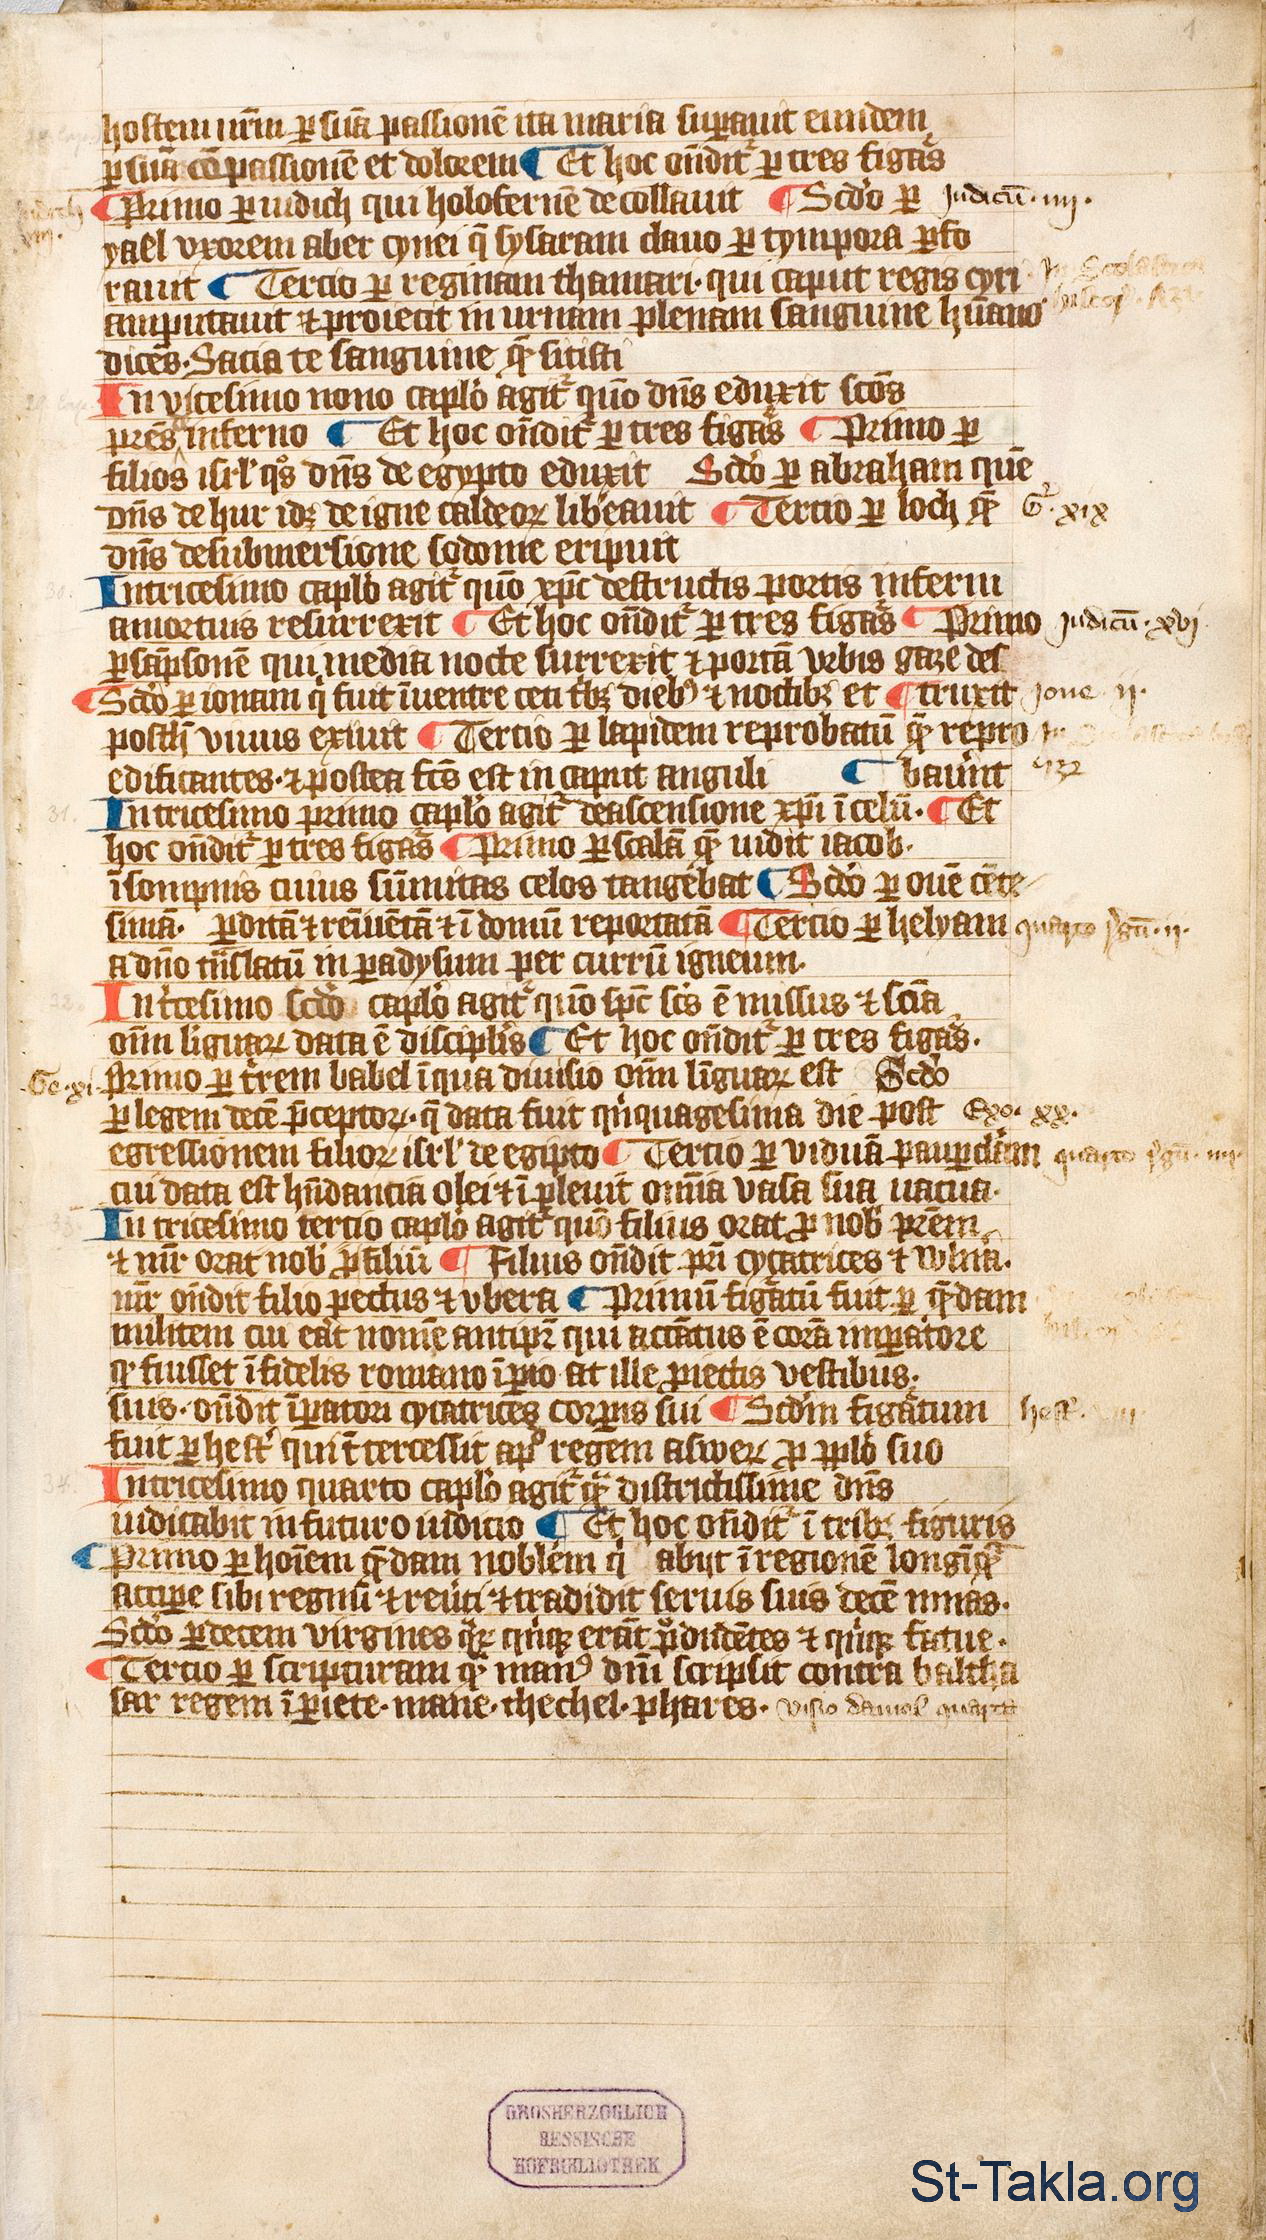 hostem nr̄m ꝑ suā passionē ita maria suꝑauit eundem
ꝑ suā cōpassionē et dolorem ¶ Et hoc on̄ditᷣ ꝑ tres figᵃs
¶ Primo ꝑ iudich qui holofernē decollauit ¶ Scd̓o ꝑ Judicū · iiij ·
yael vxorem aber cynei q̄ sysaram clauo ꝑ tympora ꝑfo
rauit ¶ Tercio ꝑ reginam thamari · qui caput regis cyri
amputauit ⁊ proiecit in urnam plenam sanguine hūano
dicēs · Sacia te sanguine qᷓ sitisti
In vicesimo nono capl̓o agitᷣ quō dn̄s eduxit scōs
prēs inferno ¶ Et hoc on̄ditᷣ ꝑ tres figᵃs ¶ Primo ꝑ
filios isrl̓ qͦs dn̄s de egypto eduxit Scd̓o ꝑ abraham quē
dn̄s de hur idꝫ de igne caldeoꝝ libe̓auit ¶ Tercio ꝑ loth qᷓ G · xix
dn̄s de submersione sodome eripuit
In tricesimo capl̓o agitᷣ quō xp̄c destructis portis inferni
a mortuis resurrexit ¶ Et hoc on̄ditᷣ ꝑ tres figᵃs ¶ Primo Judicū · xvj
ꝑ sāpsonē qui media nocte surrexit ⁊ portā urbis gaze des
¶ Scd̓o ꝑ ionam qͥ fuit ī uentre ceti tͥbꝫ diebꝰ ⁊ noctibꝫ et ¶ truxit Jone · ij ·
posth̓ viuus exiuit ¶ Tercio ꝑ lapidem reprobatū qᷓ repro
edificantes · ⁊ postea fc̄s est in caput anguli ¶ baue̓rt
31. In tricesimo primo capl̓o agitᷣ de ascensione xp̄i ī celū · ¶ Et
hoc on̄ditᷣ ꝑ tres figᵃs ¶ Primo ꝑ scalā qᷓ uidit iacob ·
ī sompnis cuius sūmitas celos tangebat ¶ Scd̓o ꝑ ouē cēte
simā · ꝑditā ⁊ reīuētā ⁊ ī domū reportatā ¶ Tercio ꝑ helyam quarto regū · ij ·
a dn̄o tn̄slatū in ꝑadysum per currū igneum ·
32. In tͥcesimo scd̓o capl̓o agitᷣ quō sp̄c scs̄ ē missus ⁊ scīa
om̄ liguaꝝ data ē discipl̓is ¶ Et hoc on̄ditᷣ ꝑ tres figᵃs ·
Ge · xi · Primo ꝑ tᷣrem babel ī qua diuisio om̄ līguaꝝ est Scd̓o
ꝑ legem decē p̄ceptoꝝ · q̄ data fuit qͥnquagesima die post Exo · xx ·
egressionem filioꝝ isrl̓ de egipto ¶ Tercio ꝑ viduā pauꝑclām quarto regū · iiij ·
cui data est hn̄dancia olei ⁊ ī pleuit omīa vasa sua uacua ·
33. In tricesimo tercio capl̓o agitᷣ quō filius orat ꝓ nob̓ prēm
⁊ mr̄ orat nob̓ ꝓ filiū ¶ Filius on̄dit pr̄i cycatrices ⁊ wln̓a ·
mr̄ on̄dit filio pectus ⁊ vbera ¶ Primū figᵃtū fuit ꝑ qᷓdam
militem cui eāt nomē antipr̄ qui accūatus ē corā imꝑatore
ꝙ fuisset īfidelis romano īꝑio at ille ꝓiectis vestibus ·
suis · on̄dit īꝑatori cycatrices corꝑis sui ¶ Scd̓m figᵃtum hest̓ ·
fuit ꝑ hest̓ qui ītercessit apͩ regem aswerꝝ ꝓ pplo suo
34. In tricesimo quarto capl̓o agitᷣ qᷓ districtissime dn̄s
iudicabit in futuro iudicio ¶ Et hoc on̄ditᷣ ī tribꝫ figuris
¶ Primo ꝑ hoīem qᷓdam nobl̓em qͥ abijt ī regionē longīqᷓ
accipe̓ sibi regnū ⁊ reue̓ti ⁊ tradidit seruis suis decē mnas ·
Scd̓o ꝑ decem virgines qᷓꝝ qͥnqꝫ erāt prudētes ⁊ qͥnqꝫ fatue ·
¶ Tercio ꝑ scripturam qᷓ manꝰ dn̄i scripsit contra baltha
sar regem ī ꝑiete · mane · thechel · phares · visio daniel quarta
GROSHERZOGLICH
HESSISCHE
HOFBIBLIOTHEK
St-Takla.org